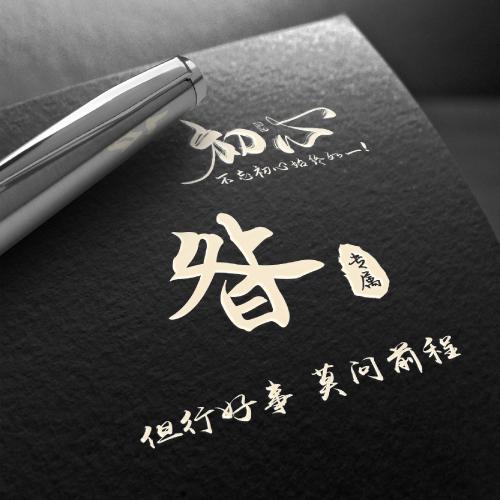 初心
不忘初心始终如一!
昝
专属
但行好事 莫问前程